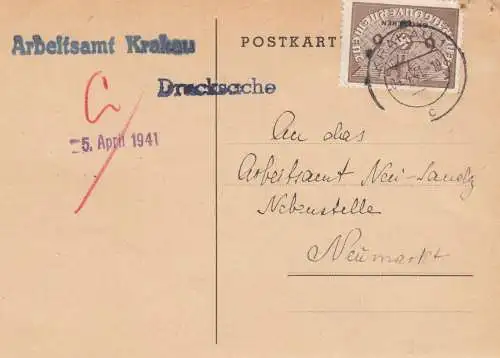 Arbeitsamt Krakau
POSTKART
Drucksache
-5. April 1941
KRAKAU 1
c
An das
Arbeitsamt Neu-Sandez
Nebenstelle
Neumarkt